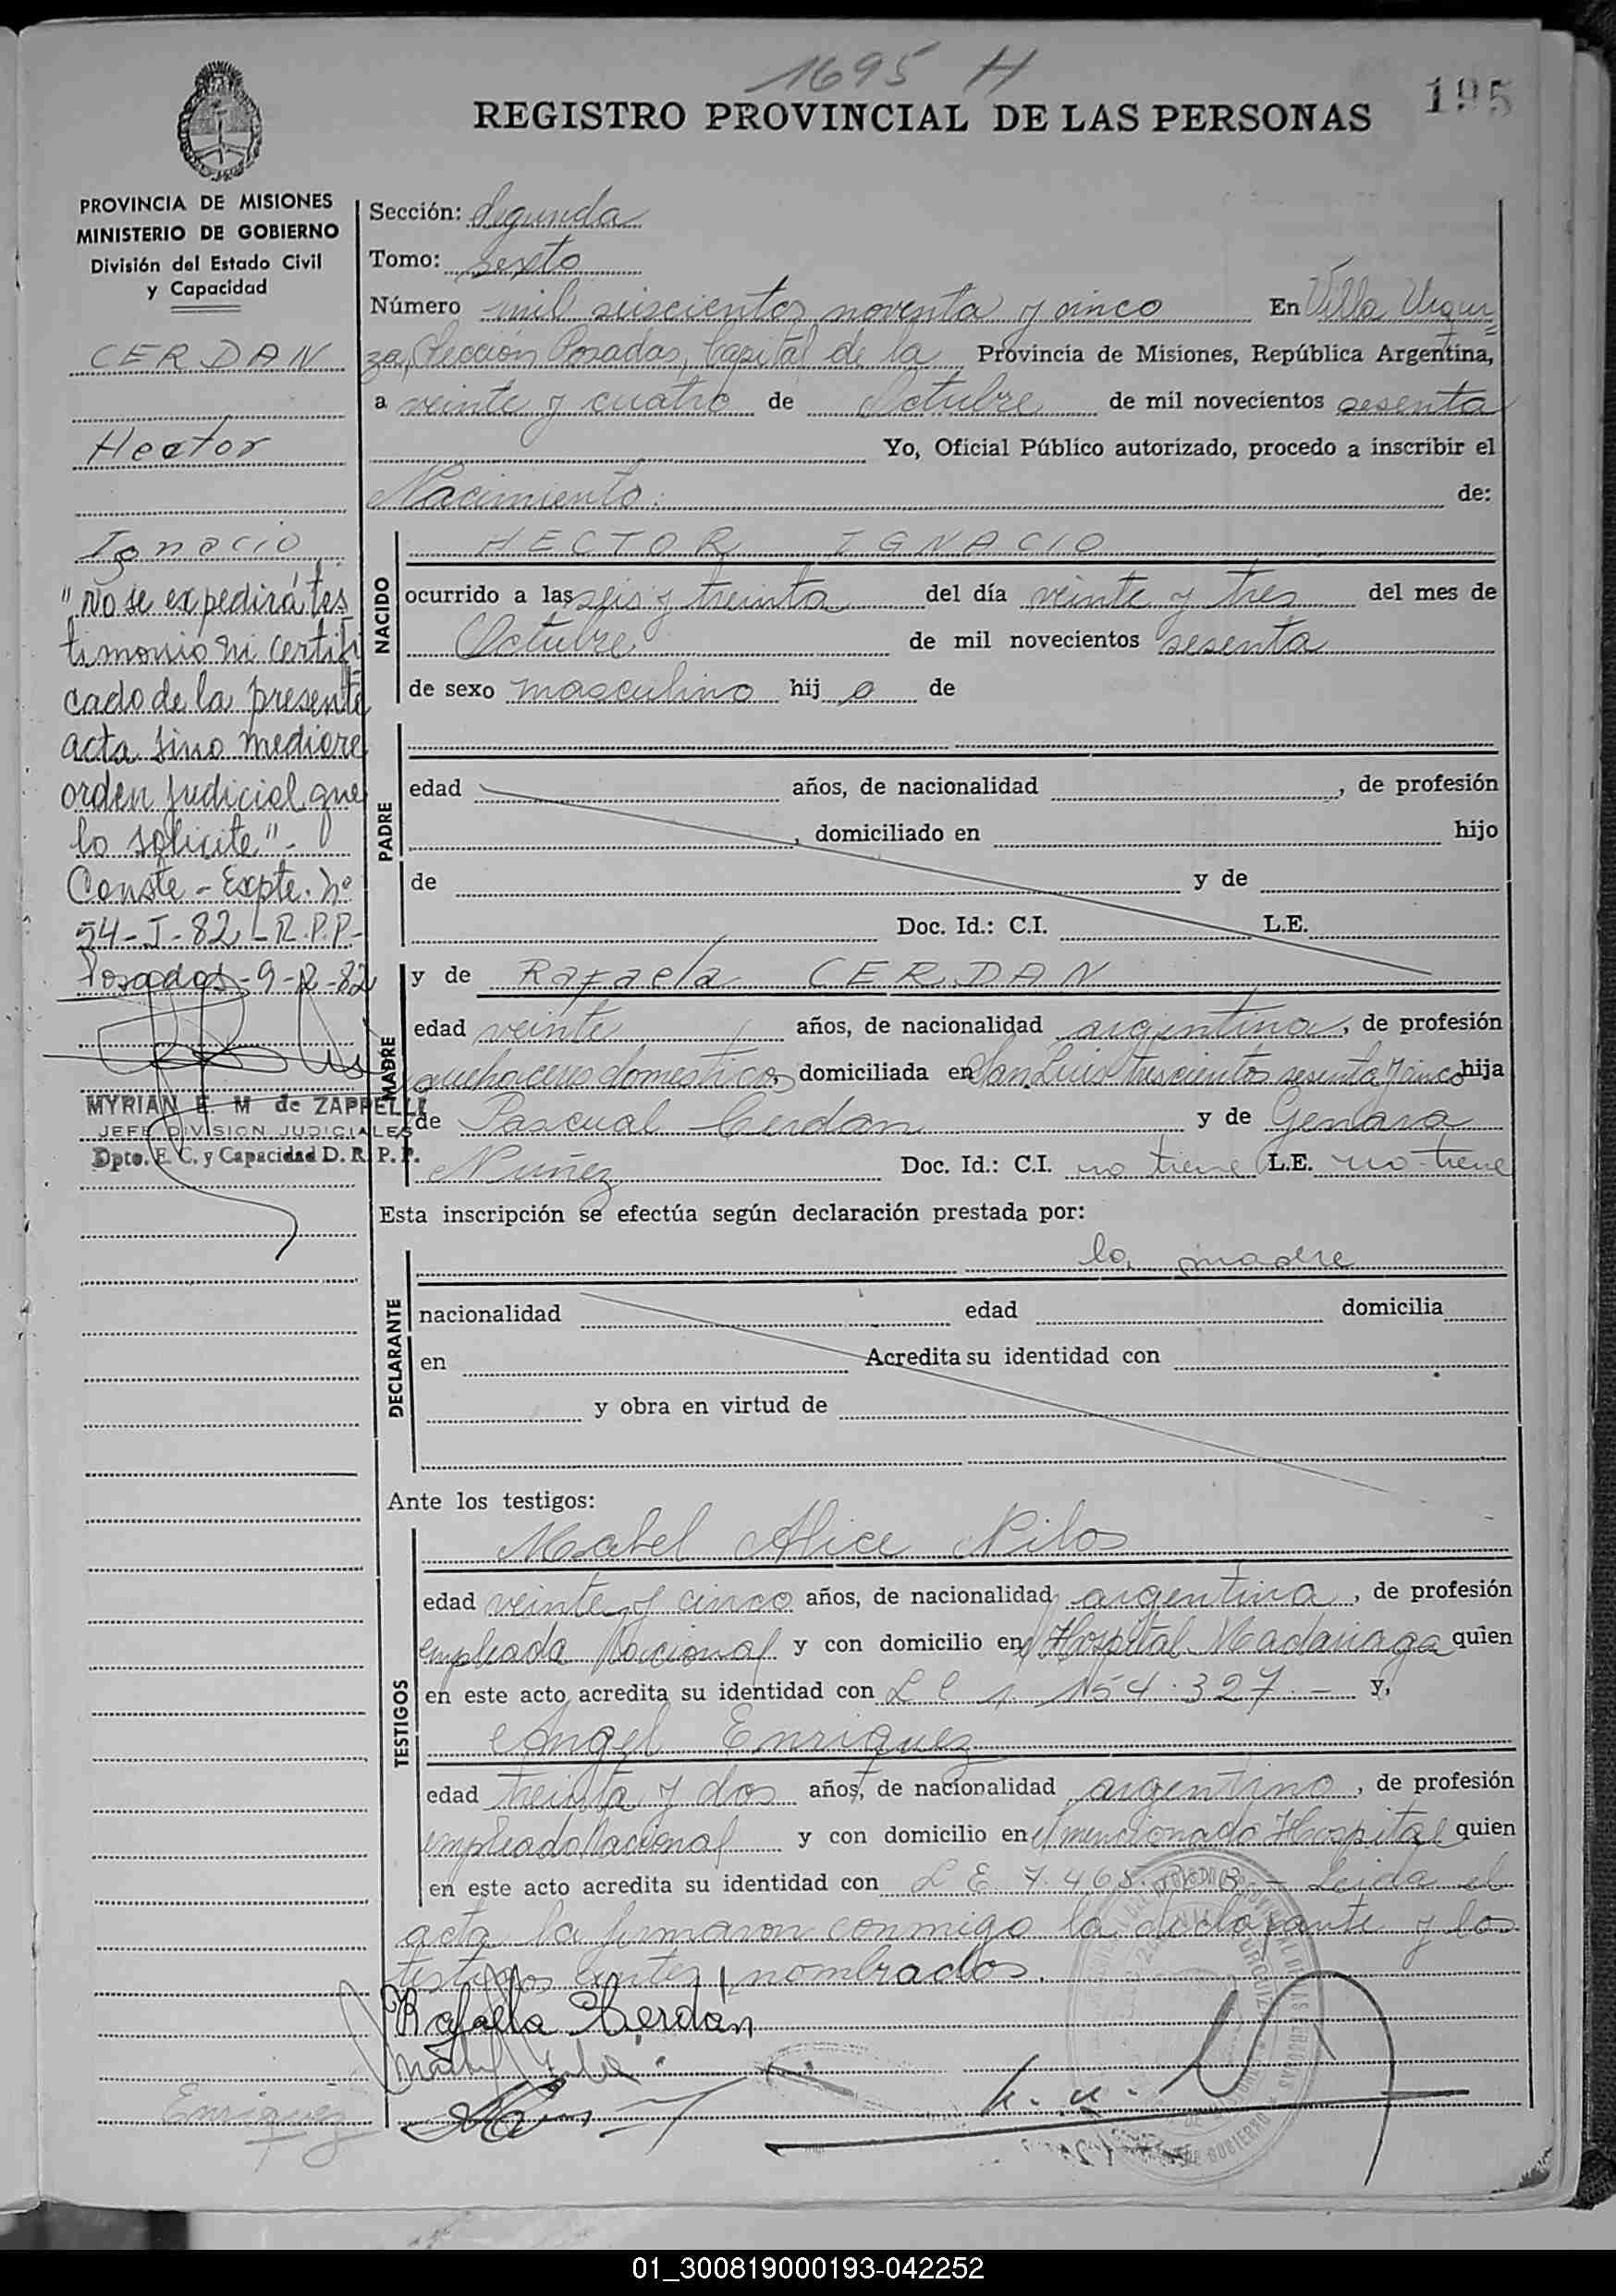 1695 H
195
REGISTRO PROVINCIAL DE LAS PERSONAS
PROVINCIA DE MISIONES
MINISTERIO DE GOBIERNO
División del Estado Civil
y Capacidad
CERDAN
Hector
Ignacio
"No se expedirá tes
timonio ni certifi
cado de la presente
acta sino mediare
orden judicial que
lo solicite"-
Conste - Expte. nº
54-I-82-R.P.P.-
Posadas-9-2-82
MYRIAN E. M de ZAPPELLI
JEFE DIVISION JUDICIALES
Dpto. E. C. y Capacidad D. R. P. P.
Sección: Segunda
Tomo: sexto
Número mil seiscientos noventa y cinco En Villa Urqui
za, Sección Posadas, Capital de la Provincia de Misiones, República Argentina,
a veinte y cuatro de Octubre de mil novecientos sesenta
Yo, Oficial Público autorizado, procedo a inscribir el
Nacimiento: de:
NACIDO
HECTOR IGNACIO
ocurrido a las seis y treinta del día veinte y tres del mes de
Octubre de mil novecientos sesenta
de sexo masculino hij o de
PADRE
edad años, de nacionalidad , de profesión
, domiciliado en hijo
de y de
Doc. Id.: C.I. L.E.
MADRE
y de Rafaela CERDAN
edad veinte años, de nacionalidad argentina, de profesión
quehaceres domesticos, domiciliada en San Luis trescientos sesenta y cinco hija
de Pascual Cerdan y de Genara
Nuñez Doc. Id.: C.I. no tiene L.E. no tiene
Esta inscripción se efectúa según declaración prestada por:
DECLARANTE
la madre
nacionalidad edad domicilia
en Acredita su identidad con
y obra en virtud de
Ante los testigos:
TESTIGOS
Mabel Alice Nilos
edad veinte y cinco años, de nacionalidad argentina, de profesión
empleada Nacional y con domicilio en Hospital Madariaga quien
en este acto acredita su identidad con L C 1.154.327.- y,
Angel Enriquez
edad treinta y dos años, de nacionalidad argentino, de profesión
empleado Nacional y con domicilio en el mencionado Hospital quien
en este acto acredita su identidad con L E 7.465. - Leida el
acta la firmaron conmigo la declarante y los
testigos antes nombrados.
Rafaela Cerdán
Enriquez
01_300819000193-042252